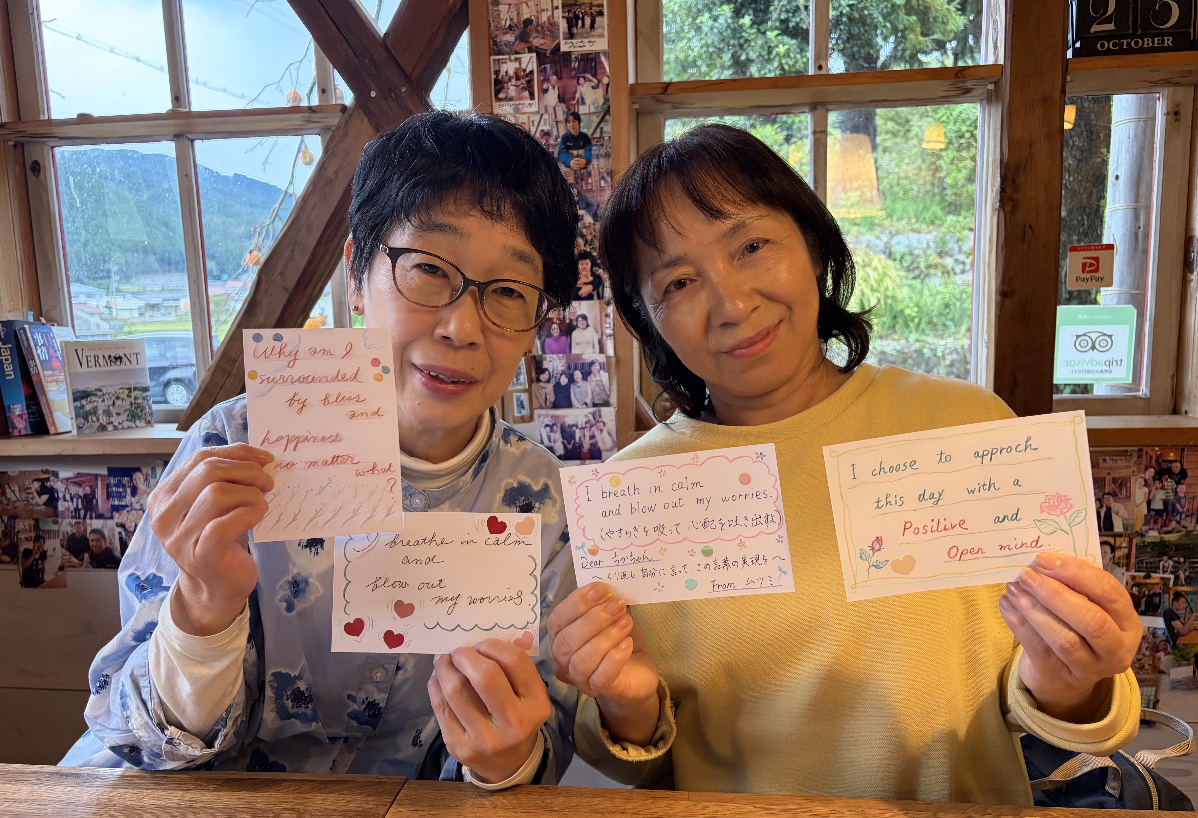 25
OCTOBER
PayPay
tripadvisor
Japan
VERMONT
Why am I
surrounded
by bliss
and
happiness
no matter
what
?
I breathe in calm
and
blow out
my worries
I breath in calm
and blow out my worries.
(やすらぎを吸って 心配を吐き出す)
Dear ちかちゃん
From ムツミ
I choose to approch
this day with a
Positive and
Open mind.